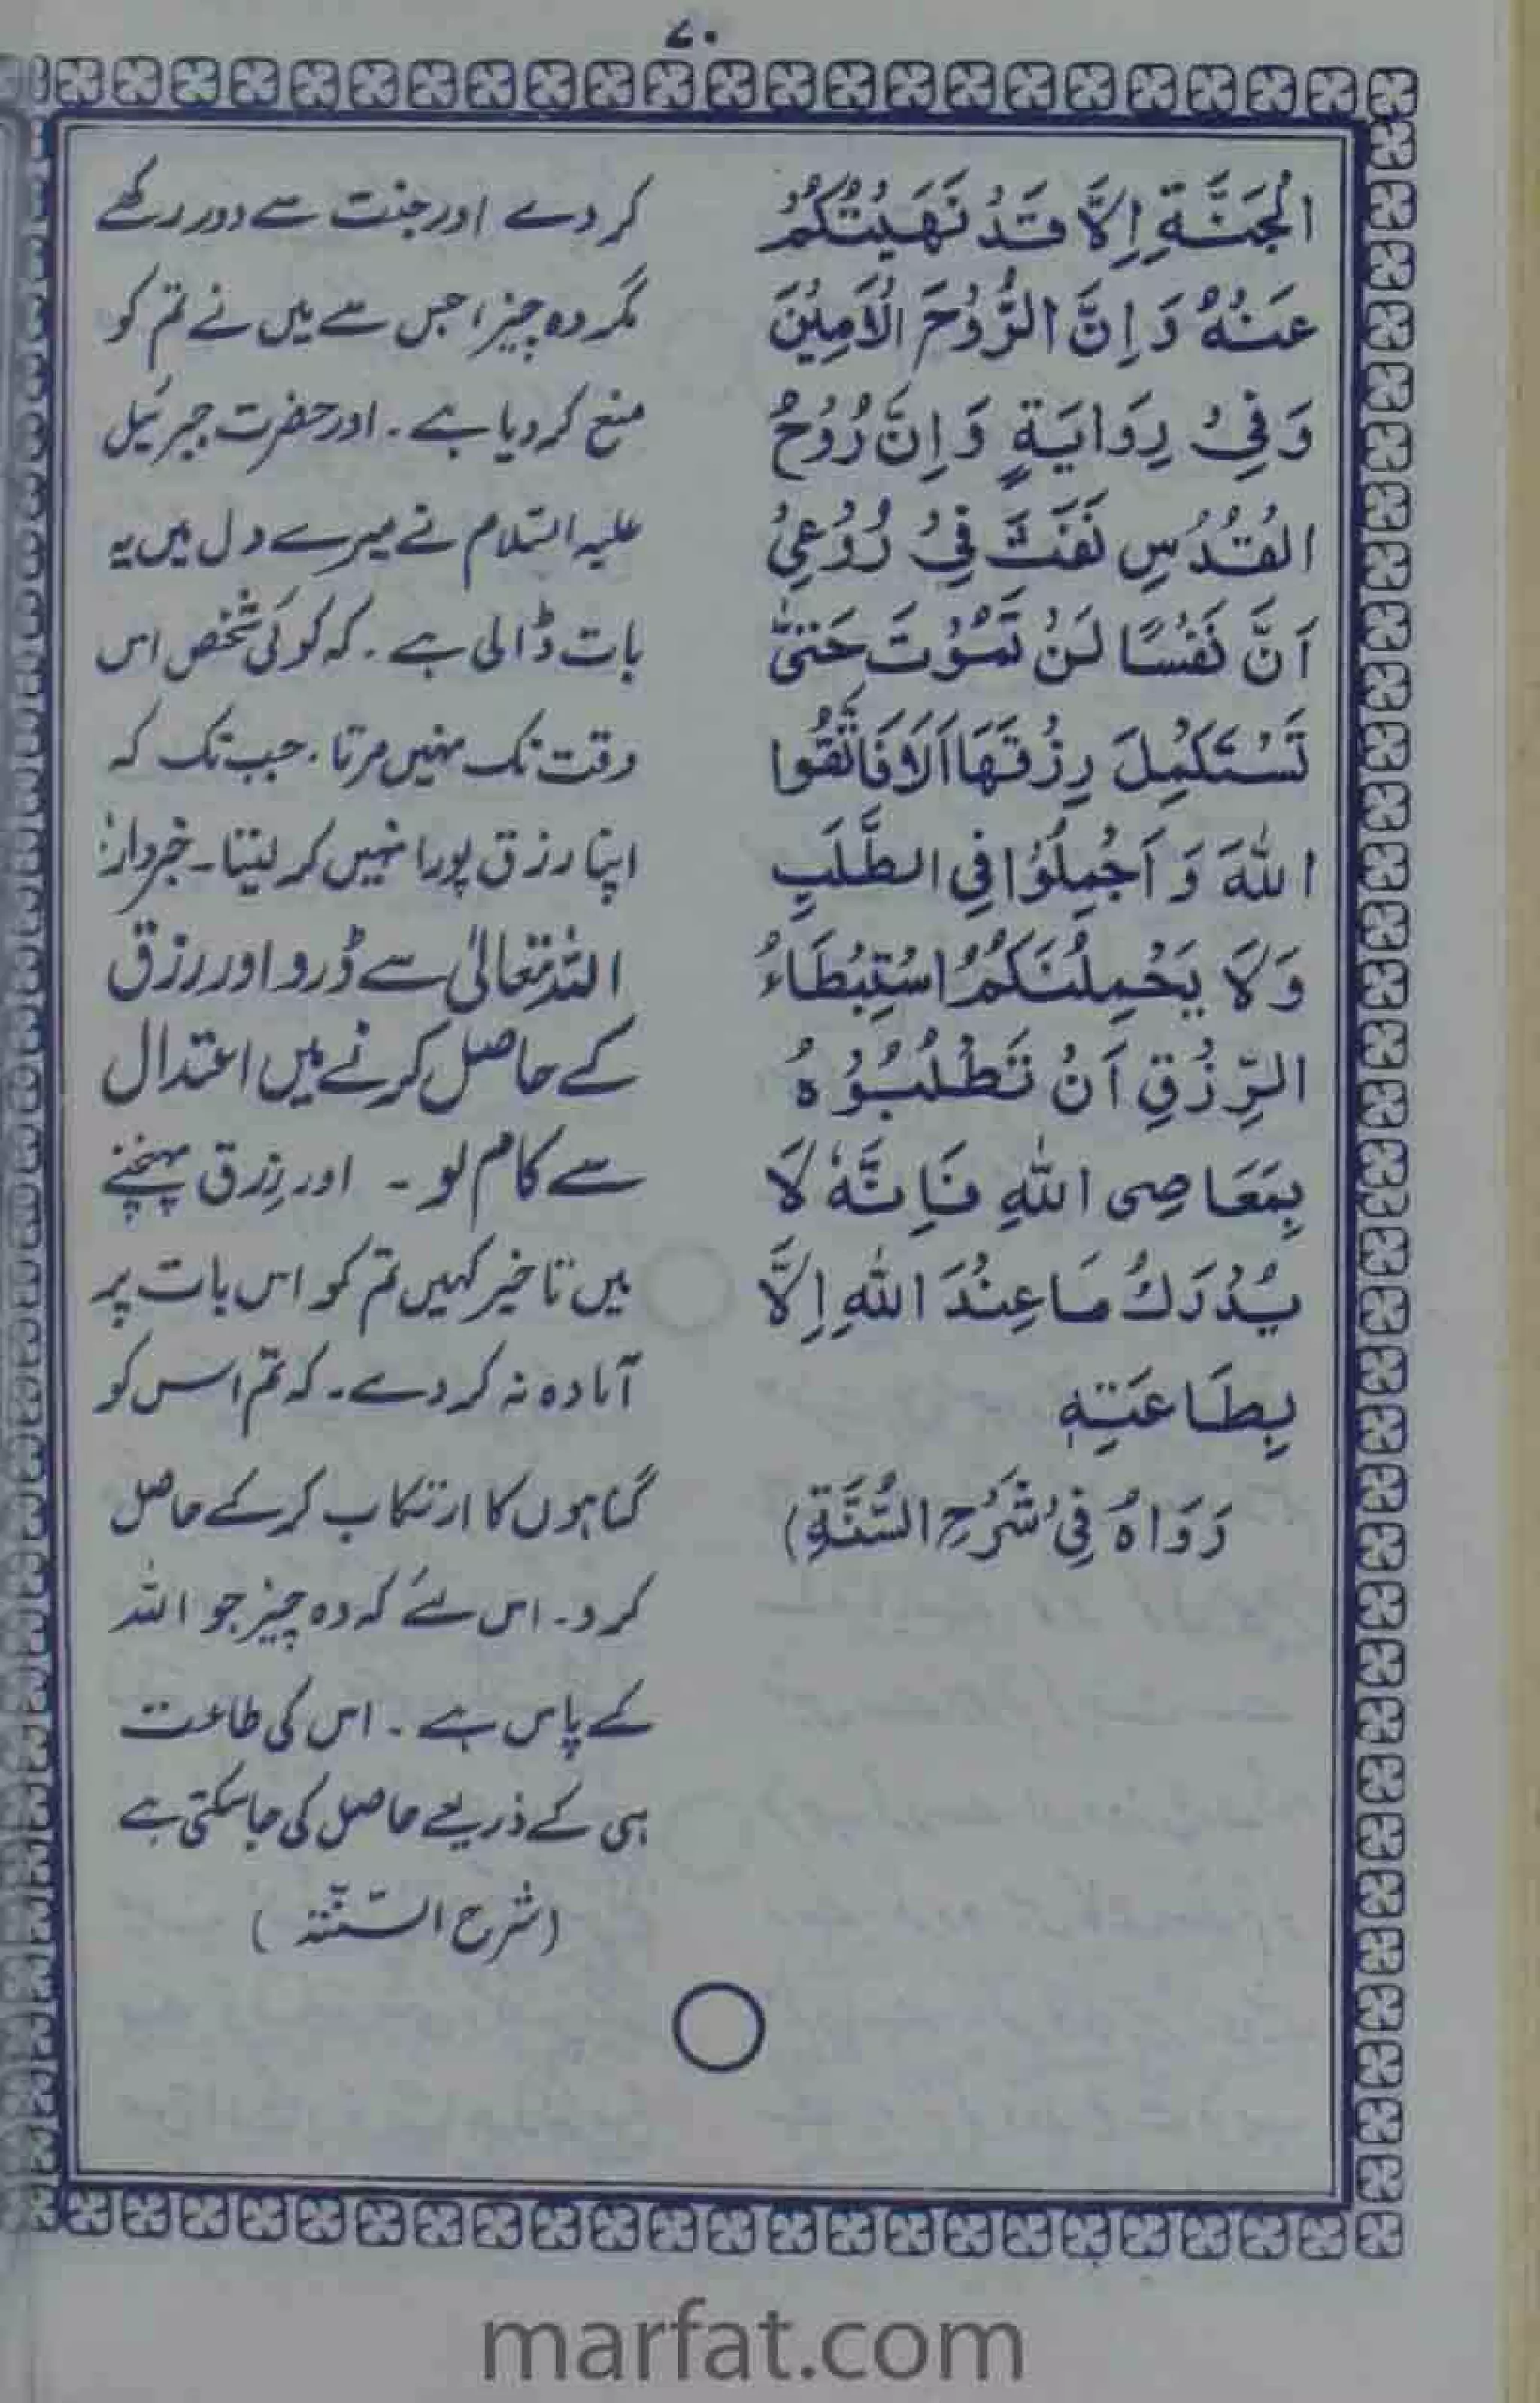 ۷۰
الْجَنَّةِ اِلَّا قَدْ نَهَيْتُكُمْ
عَنْهُ وَ اِنَّ الرُّوْحَ الْاَمِيْنَ
وَفِيْ رِوَايَةٍ وَ اِنَّ رُوْحَ
الْقُدُسِ نَفَثَ فِيْ رُوْعِيْ
اَنَّ نَفْسًا لَنْ تَمُوْتَ حَتّٰى
تَسْتَكْمِلَ رِزْقَهَا اَلَا فَاتَّقُوا
اللّٰهَ وَ اَجْمِلُوْا فِي الطَّلَبِ
وَلَا يَحْمِلَنَّكُمُ اسْتِبْطَاءُ
الرِّزْقِ اَنْ تَطْلُبُوْهُ
بِمَعَاصِى اللّٰهِ فَاِنَّهٗ لَا
يُدْرَكُ مَا عِنْدَ اللّٰهِ اِلَّا
بِطَاعَتِهٖ
رَوَاهُ فِيْ شَرْحِ السُّنَّةِ)
کر دے اور جنت سے دور رکھے
مگر وہ چیز، جس سے میں نے تم کو
منع کر دیا ہے ۔ اور حضرت جبرئیل
علیہ السّلام نے میرے دل میں یہ
بات ڈالی ہے ۔ کہ کوئی شخص اس
وقت تک نہیں مرتا ۔ جب تک کہ
اپنا رزق پورا نہیں کر لیتا ۔ خبردار!
اللہ تعالیٰ سے ڈرو اور رزق
کے حاصل کرنے میں اعتدال
سے کام لو ۔ اور رِزق پہنچنے
میں تاخیر کہیں تم کو اس بات پر
آمادہ نہ کر دے ۔ کہ تم اس کو
گناہوں کا ارتکاب کر کے حاصل
کرو ۔ اس لئے کہ وہ چیز جو اللہ
کے پاس ہے ۔ اس کی طاعت
ہی کے ذریعے حاصل کی جا سکتی ہے
(شرح السّنّۃ )
marfat.com